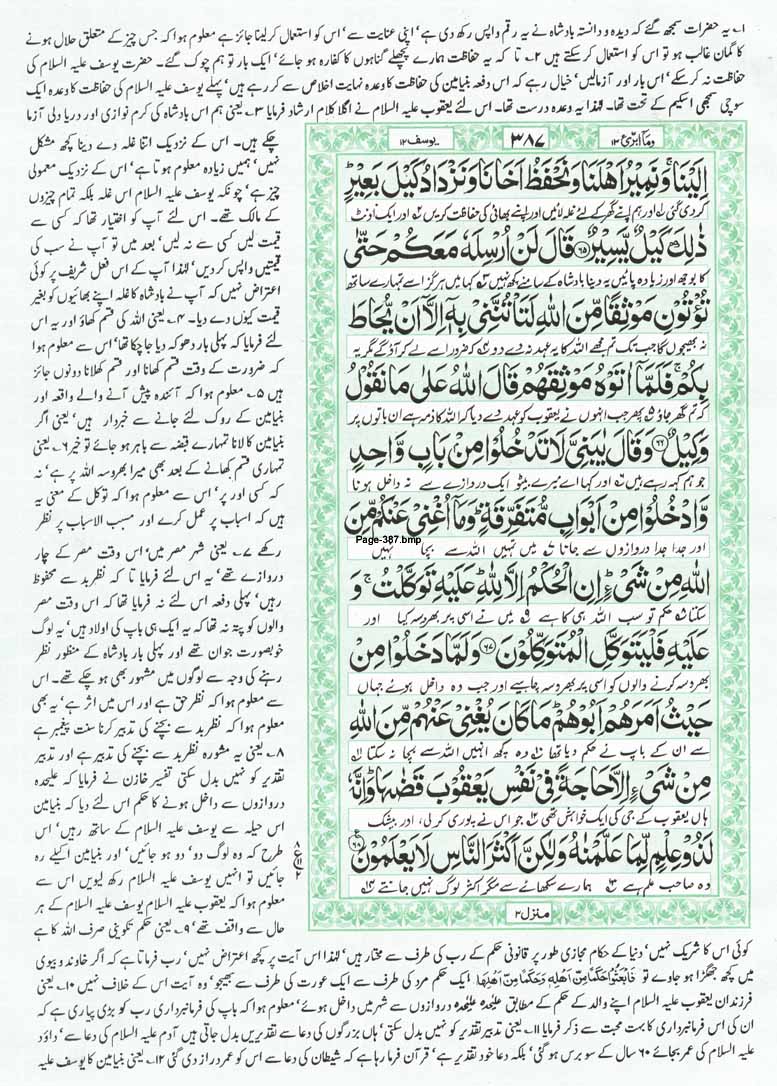 ۱؎ یہ حضرات سمجھ گئے کہ دیدہ و دانستہ بادشاہ نے یہ رقم واپس رکھ دی ہے ‘ اپنی عنایت سے ‘ اس کو استعمال کر لینا جائز ہے معلوم ہوا کہ جس چیز کے متعلق حلال ہونے
کا گمان غالب ہو تو اس کو استعمال کر سکتے ہیں ۲؎ تا کہ یہ حفاظت ہمارے پچھلے گناہوں کا کفارہ ہو جائے ‘ ایک بار تو ہم چوک گئے۔ حضرت یوسف علیہ السلام کی
حفاظت نہ کر سکے ‘ اس بار اور آزمالیں ‘ خیال رہے کہ اس دفعہ بنیامین کی حفاظت کا وعدہ نہایت اخلاص سے کر رہے ہیں ‘ پہلے یوسف علیہ السلام کی حفاظت کا وعدہ ایک
سوچی سمجھی اسکیم کے تحت تھا۔ لہٰذا یہ وعدہ درست تھا۔ اس لئے یعقوب علیہ السلام نے اگلا کلام ارشاد فرمایا ۳؎ یعنی ہم اس بادشاہ کی کرم نوازی اور دریا دلی آزما
چکے ہیں۔ اس کے نزدیک اتنا غلہ دے دینا کچھ مشکل
نہیں ‘ ہمیں زیادہ معلوم ہوتا ہے ‘ اس کے نزدیک معمولی
چیز ہے ‘ چونکہ یوسف علیہ السلام اس غلہ بلکہ تمام چیزوں
کے مالک تھے۔ اس لئے آپ کو اختیار تھا کہ کسی سے
قیمت لیں کسی سے نہ لیں ‘ بعد میں تو آپ نے سب کی
قیمتیں واپس کر دیں ‘ لہٰذا آپ کے اس فعل شریف پر کوئی
اعتراض نہیں کہ آپ نے بادشاہ کا غلہ اپنے بھائیوں کو بغیر
قیمت کیوں دے دیا۔ ۴؎ یعنی اللہ کی قسم کھاؤ اور یہ اس
لئے فرمایا کہ پہلی بار دھوکہ دیا جا چکا تھا ‘ اس سے معلوم ہوا
کہ ضرورت کے وقت قسم کھانا اور قسم کھلانا دونوں جائز
ہیں ۵؎ معلوم ہوا کہ آئندہ پیش آنے والے واقعہ اور
بنیامین کے روک لئے جانے سے خبردار ہیں ‘ یعنی اگر
بنیامین کا لانا تمہارے قبضہ سے باہر ہو جائے تو خیر ۶؎ یعنی
تمہاری قسم کھانے کے بعد بھی میرا بھروسہ اللہ پر ہے ‘ نہ
کہ کسی اور پر ‘ اس سے معلوم ہوا کہ توکل کے معنی یہ
ہیں کہ اسباب پر عمل کرے اور مسبب الاسباب پر نظر
رکھے ۷؎ یعنی شہر مصر میں ‘ اس وقت مصر کے چار
دروازے تھے ‘ یہ اس لئے فرمایا تا کہ نظر بد سے محفوظ
رہیں ‘ پہلی دفعہ اس لئے نہ فرمایا تھا کہ اس وقت مصر
والوں کو پتہ نہ تھا کہ یہ ایک ہی باپ کی اولاد ہیں ‘ یہ لوگ
خوبصورت جوان تھے اور پہلی بار بادشاہ کے منظور نظر
رہنے کی وجہ سے لوگوں میں مشہور بھی ہو چکے تھے۔ اس
سے معلوم ہوا کہ نظر حق ہے اور اس میں اثر ہے ‘ یہ بھی
معلوم ہوا کہ نظر بد سے بچنے کی تدبیر کرنا سنت پیغمبر ہے
۸؎ یعنی یہ مشورہ نظر بد سے بچنے کی تدبیر ہے اور تدبیر
تقدیر کو نہیں بدل سکتی تفسیر خازن نے فرمایا کہ علیحدہ
دروازوں سے داخل ہونے کا حکم اس لئے دیا کہ بنیامین
اس حیلہ سے یوسف علیہ السلام کے ساتھ رہیں ‘ اس
طرح کہ وہ لوگ دو ‘ دو ہو جائیں ‘ اور بنیامین اکیلے رہ
جائیں تو انہیں یوسف علیہ السلام رکھ لیویں اس سے
معلوم ہوا کہ یعقوب علیہ السلام یوسف علیہ السلام کے ہر
حال سے واقف تھے ‘ ۹؎ یعنی حکم تکوینی صرف اللہ کا ہے
وما ابرئ ۱۳
۳۸۷
یوسف ۱۲
اِلَیْنَا ۚ وَنَمِیْرُ اَهْلَنَا وَنَحْفَظُ اَخَانَا وَنَزْدَادُ كَیْلَ بَعِیْرٍ ؕ
کر دی گئی ۱؎ اور ہم اپنے گھر کے لئے غلہ لائیں اور اپنے بھائی کی حفاظت کریں ۲؎ اور ایک اونٹ
ذٰلِكَ كَیْلٌ یَّسِیْرٌ ﴿۶۵﴾ قَالَ لَنْ اُرْسِلَهٗ مَعَكُمْ حَتّٰی
کا بوجھ اور زیادہ پائیں یہ دینا بادشاہ کے سامنے کچھ نہیں ۳؎ کہا میں ہرگز اسے تمہارے ساتھ
تُؤْتُوْنِ مَوْثِقًا مِّنَ اللّٰهِ لَتَاْتُنَّنِیْ بِهٖۤ اِلَّاۤ اَنْ یُّحَاطَ
نہ بھیجوں گا جب تک تم مجھے اللہ کا یہ عہد نہ دے دو ۴؎ کہ ضرور اسے لے کر آؤ گے مگر یہ
بِكُمْ ۚ فَلَمَّاۤ اٰتَوْهُ مَوْثِقَهُمْ قَالَ اللّٰهُ عَلٰی مَا نَقُوْلُ
کہ تم گھر جاؤ ۵؎ پھر جب انہوں نے یعقوب کو عہد دے دیا کہا اللہ کا ذمہ ہے ان باتوں پر
وَكِیْلٌ ﴿۶۶﴾ وَقَالَ یٰبَنِیَّ لَا تَدْخُلُوْا مِنْۢ بَابٍ وَّاحِدٍ
جو ہم کہہ رہے ہیں ۶؎ اور کہا اے میرے بیٹو ایک دروازے سے نہ داخل ہونا
وَّادْخُلُوْا مِنْ اَبْوَابٍ مُّتَفَرِّقَةٍ ؕ وَمَاۤ اُغْنِیْ عَنْكُمْ مِّنَ
Page-387.bmp
اور جدا جدا دروازوں سے جانا ۷؎ میں تمہیں اللہ سے بچا نہیں
اللّٰهِ مِنْ شَیْءٍ ؕ اِنِ الْحُكْمُ اِلَّا لِلّٰهِ ؕ عَلَیْهِ تَوَكَّلْتُ ۚ وَ
سکتا ۸؎ حکم تو سب اللہ ہی کا ہے ۹؎ میں نے اسی پر بھروسہ کیا اور
عَلَیْهِ فَلْیَتَوَكَّلِ الْمُتَوَكِّلُوْنَ ﴿۶۷﴾ وَلَمَّا دَخَلُوْا مِنْ
بھروسہ کرنے والوں کو اسی پر بھروسہ چاہیے اور جب وہ داخل ہوئے جہاں
حَیْثُ اَمَرَهُمْ اَبُوْهُمْ ؕ مَا كَانَ یُغْنِیْ عَنْهُمْ مِّنَ اللّٰهِ
سے ان کے باپ نے حکم دیا تھا ۱۰؎ وہ کچھ انہیں اللہ سے بچا نہ سکتا ۱۱؎
مِنْ شَیْءٍ اِلَّا حَاجَةً فِیْ نَفْسِ یَعْقُوْبَ قَضٰىهَا ؕ وَاِنَّهٗ
ہاں یعقوب کے جی کی ایک خواہش تھی ۱۲؎ جو اس نے پوری کر لی ، اور بیشک
لَذُوْ عِلْمٍ لِّمَا عَلَّمْنٰهُ وَلٰكِنَّ اَكْثَرَ النَّاسِ لَا یَعْلَمُوْنَ ﴿۶۸﴾
وہ صاحب علم ہے ہمارے سکھائے سے مگر اکثر لوگ نہیں جانتے
منزل ۳
کوئی اس کا شریک نہیں ‘ دنیا کے حکام مجازی طور پر قانونی حکم کے رب کی طرف سے مختار ہیں ‘ لہٰذا اس آیت پر کچھ اعتراض نہیں ‘ رب فرماتا ہے کہ اگر خاوند و بیوی
میں کچھ جھگڑا ہو جاوے تو فَابْعَثُوْا حَكَمًا مِّنْ اَهْلِهٖ وَحَكَمًا مِّنْ اَهْلِهَا۔ ایک حکم مرد کی طرف سے ایک عورت کی طرف سے بھیجو ‘ وہ آیت اس کے خلاف نہیں ۱۰؎ یعنی
فرزندان یعقوب علیہ السلام اپنے والد کے حکم کے مطابق علیحدہ علیحدہ دروازوں سے شہر میں داخل ہوئے ‘ معلوم ہوا کہ باپ کی فرمانبرداری رب کو بڑی پیاری ہے کہ
ان کی اس فرمانبرداری کا بہت محبت سے ذکر فرمایا ۱۱؎ یعنی تدبیر تقدیر کو نہیں بدل سکتی ‘ ہاں بزرگوں کی دعا سے تقدیریں بدل جاتی ہیں آدم علیہ السلام کی دعا سے ‘ داؤد
علیہ السلام کی عمر بجائے ۶۰ سال کے سو برس ہو گئی ‘ بلکہ دعا خود تقدیر ہے ‘ قرآن فرما رہا ہے کہ شیطان کی دعا سے اس کو عمر دراز دی گئی ۱۲؎ یعنی بنیامین کا یوسف علیہ